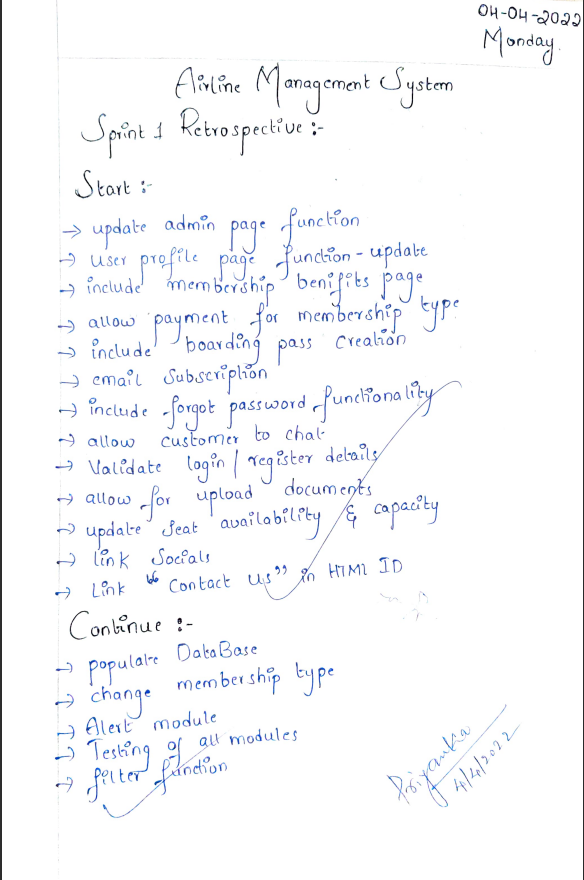 04-04-2022
Monday.
Airline Management System
Sprint 1 Retrospective :-
Start :-
→ update admin page function
→ user profile page function - update
→ include membership benifits page
→ allow payment for membership type
→ include boarding pass creation
→ email subscription
→ include forgot password functionality
→ allow customer to chat
→ Validate login / register details
→ allow for upload documents
→ update seat availability & capacity
→ link Socials
→ Link “Contact Us” in HTML ID
Continue :-
→ populate DataBase
→ change membership type
→ Alert module
→ Testing of all modules
→ filter function
Priyanka
4/4/2022